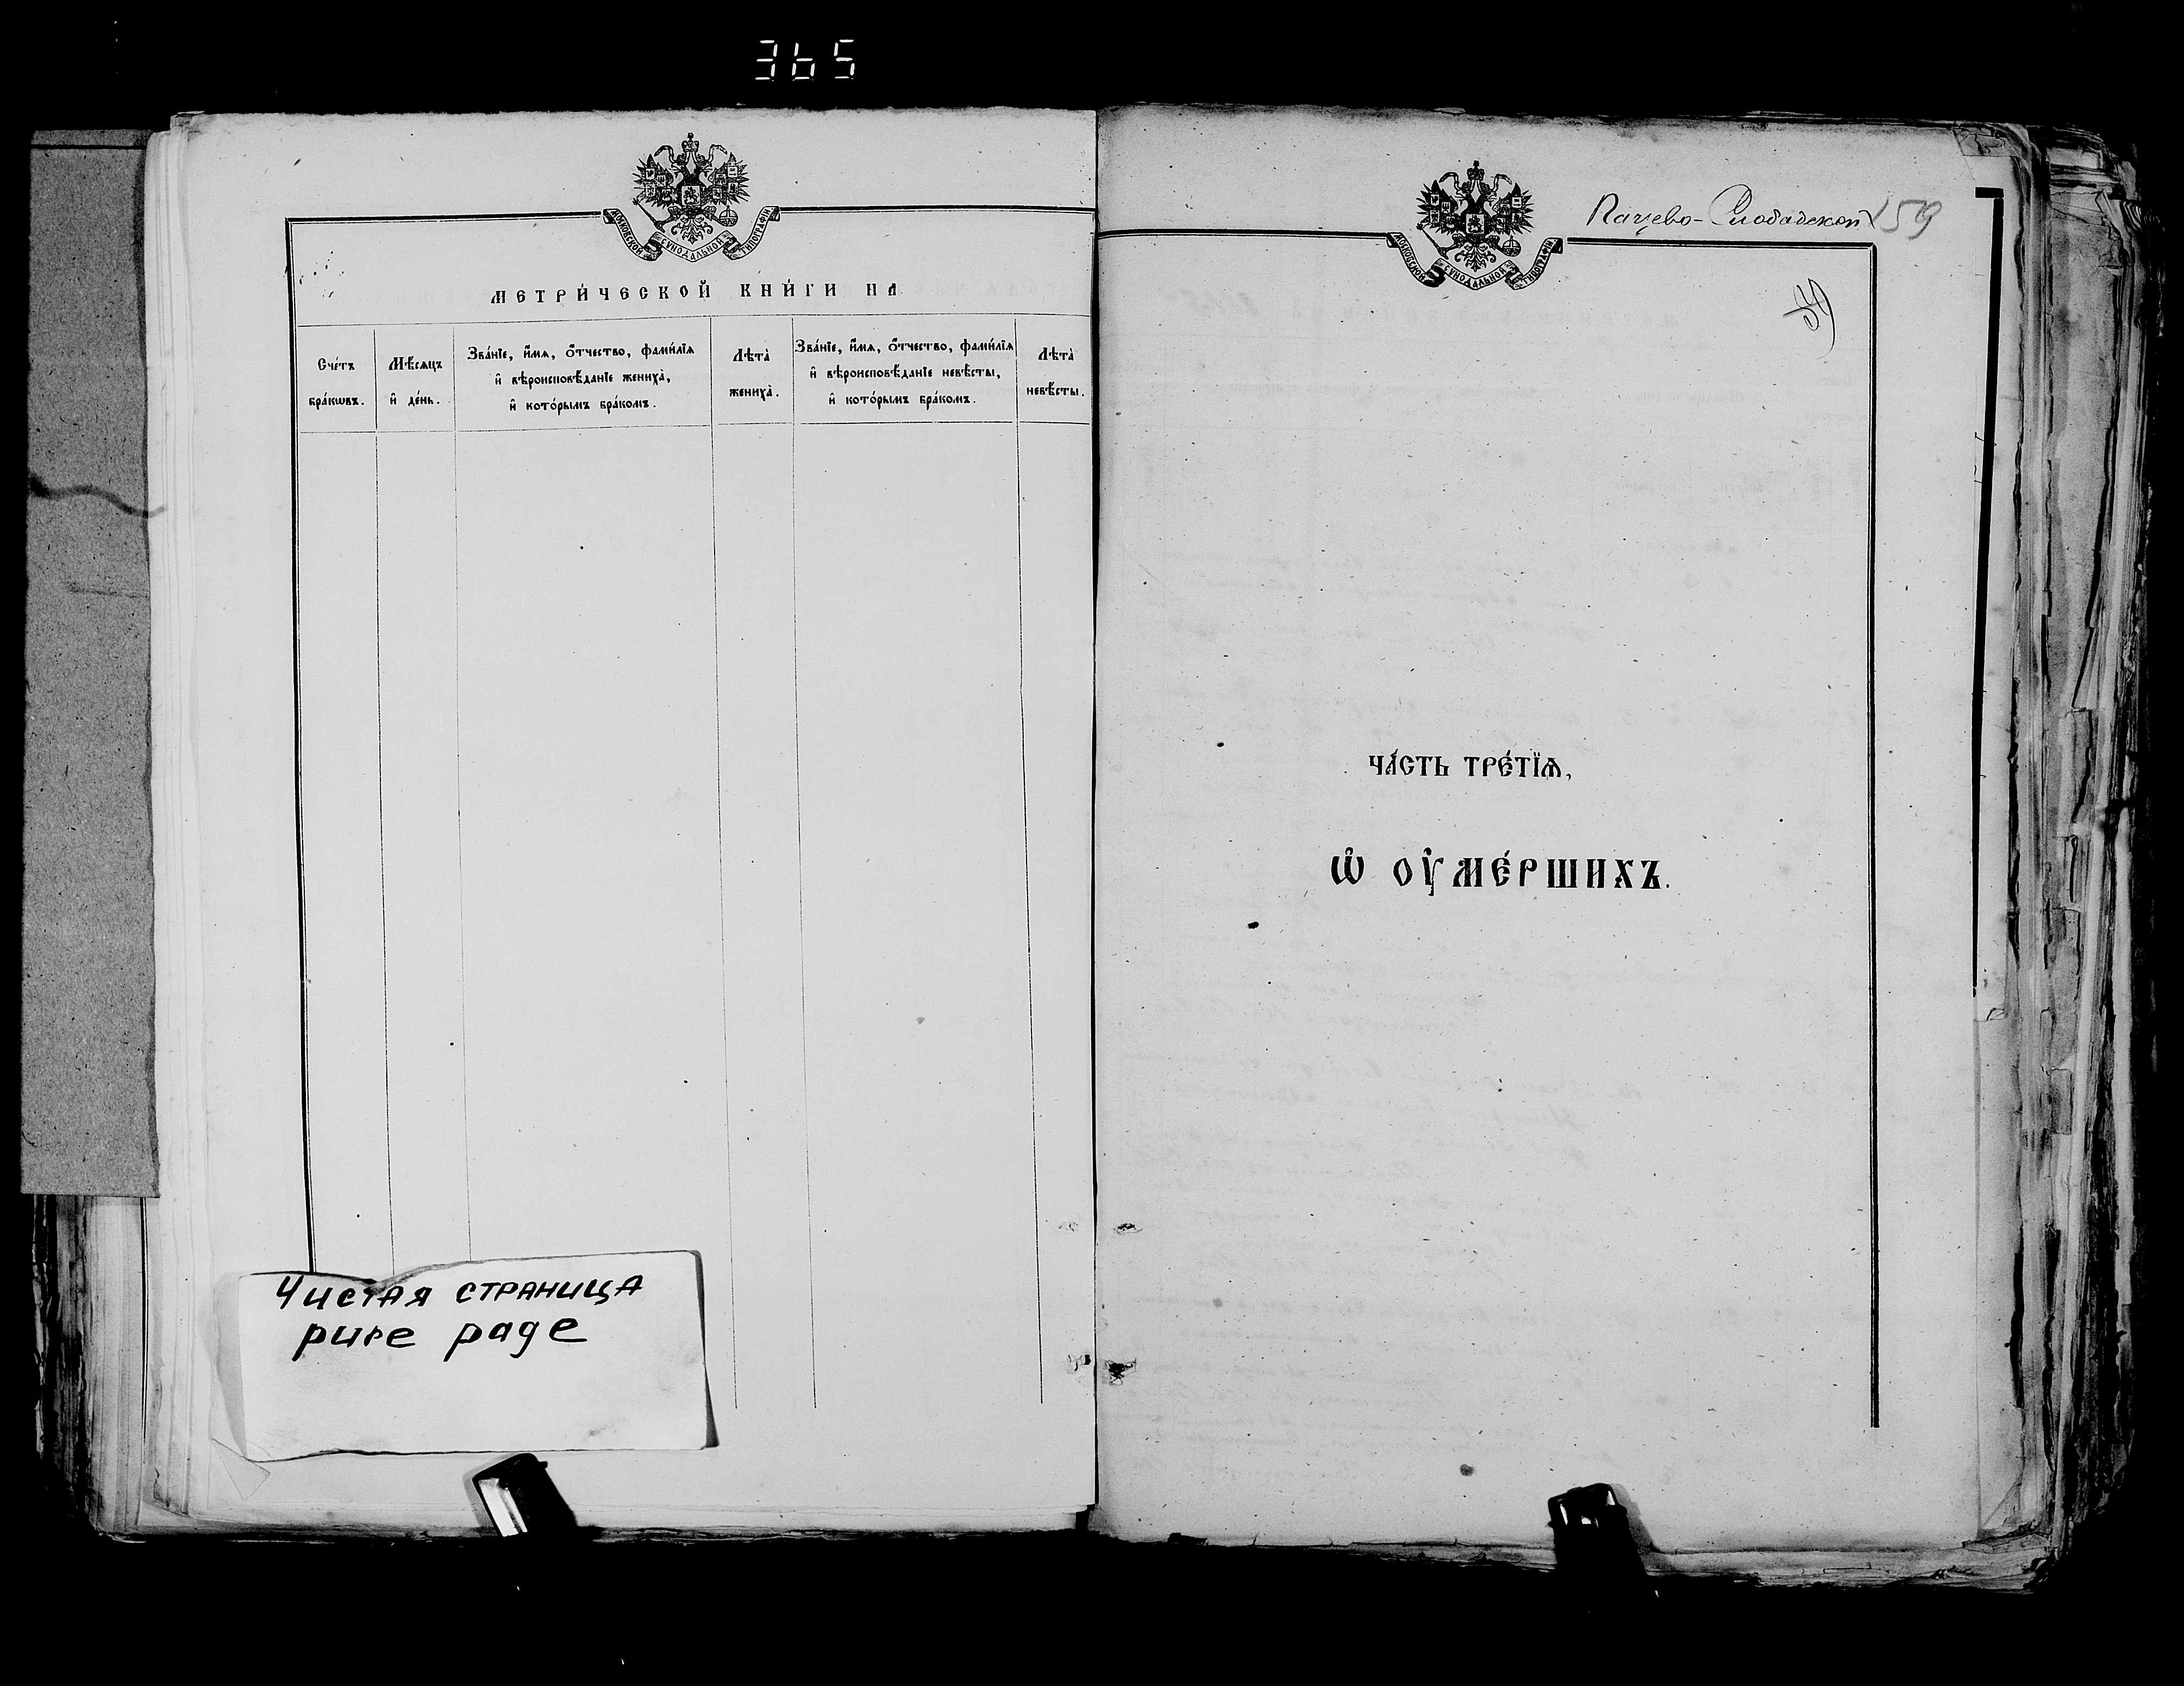 365
МОСКОВСКОЙ СУНОДАЛЬНОЙ ТИПОГРАФІИ
МЕТРИ́ЧЕСКОЙ КНИ́ГИ НА
Сче́тъ
бра́кѡвъ.
Мѣ́сѧцъ
и҆ де́нь.
Зва́нїе, и҆́мѧ, ѻ҆́тчество, фами́лїѧ
и҆ вѣроисповѣ́данїе женихà,
и҆ кото́рымъ бра́комъ.
Лѣ́та
женихà.
Зва́нїе, и҆́мѧ, ѻ҆́тчество, фами́лїѧ
и҆ вѣроисповѣ́данїе невѣ́сты,
и҆ кото́рымъ бра́комъ.
Лѣ́та
невѣ́сты.
Чистая страница
pure page
МОСКОВСКОЙ СУНОДАЛЬНОЙ ТИПОГРАФІИ
159
59
ЧА́СТЬ ТРЕ́ТЇѦ,
Ѡ҆ ОУ҆МЕ́РШИХЪ.